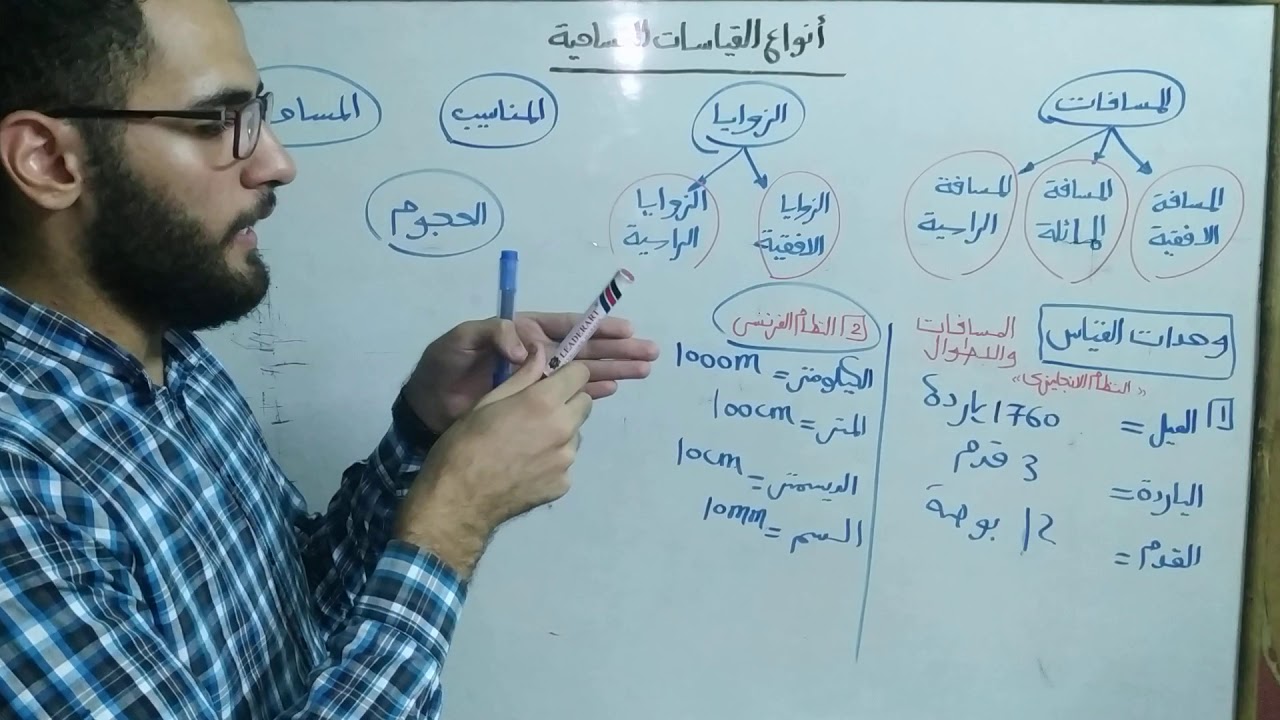 أنواع القياسات المساحية
المسافات
الزوايا
المناسيب
المساح
المسافة الافقية
المسافة المائلة
المسافة الراسية
الزوايا الافقية
الزوايا الراسية
الحجوم
وحدات القياس
المسافات
والاطوال
«النظام الانجليزى»
1 الميل = 1760 ياردة
الياردة = 3 قدم
القدم = 12 بوصة
2 النظام الفرنسى
الكيلومتر = 1000m
المتر = 100cm
الديسمتر = 10cm
السم = 10mm
LEADERART